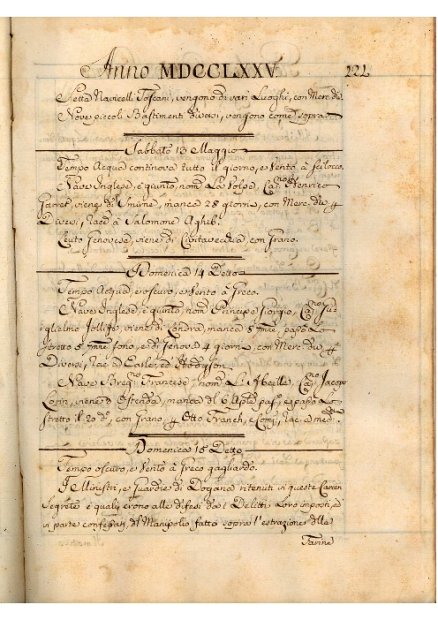 Anno MDCCLXXV. 221
Sette Navicelli Toscani, vengono di vari Luoghi, con Merc. die
Nove piccoli Bastimenti diversi, vengono come sopra
Sabbato 13 Maggio
Tempo Acqua continova tutto il giorno, e Vento à Scilocco,
Nave Inglese, è giunto, nom. La Volpe, Enrico
Garret, viene di Smirne, manca 28 giorni, con Merc. die
Diversi, Racc. à Salomone Aghib.
Leuto Genovese, viene di Civitavecchia, con Grano.
Domenica 14 Detto
Tempo Acqua, e oscuro, e Vento à Greco.
Nave Inglese, è giunto, nom. Principe Giorgio,
Guglielmo Jolliffe, viene di Londra, manca 5
stretto 5 sono, e di Genova 4 giorni, con Merc. die
Diversi, Racc. ad Earle, ed Hodgson.
Nave Francese, nom. L'Abeille, Jacopo
viene d'Ostenda, manca dl 6 Aple pas., e passò Lo
stretto il 20 do, con Grano, Otto Franck, e Comp., Racc. a med.
Domenica 15 Detto
Tempo oscuro, e Vento à Greco gagliardo.
I Ministri, e Guardie di Dogana ritenuti in queste Carceri
Segrete è quali erono alle difese de i Delitti Loro imposti, ed
in parte confessati, dl Manipolio fatto sopra l'estrazione delle
Farine